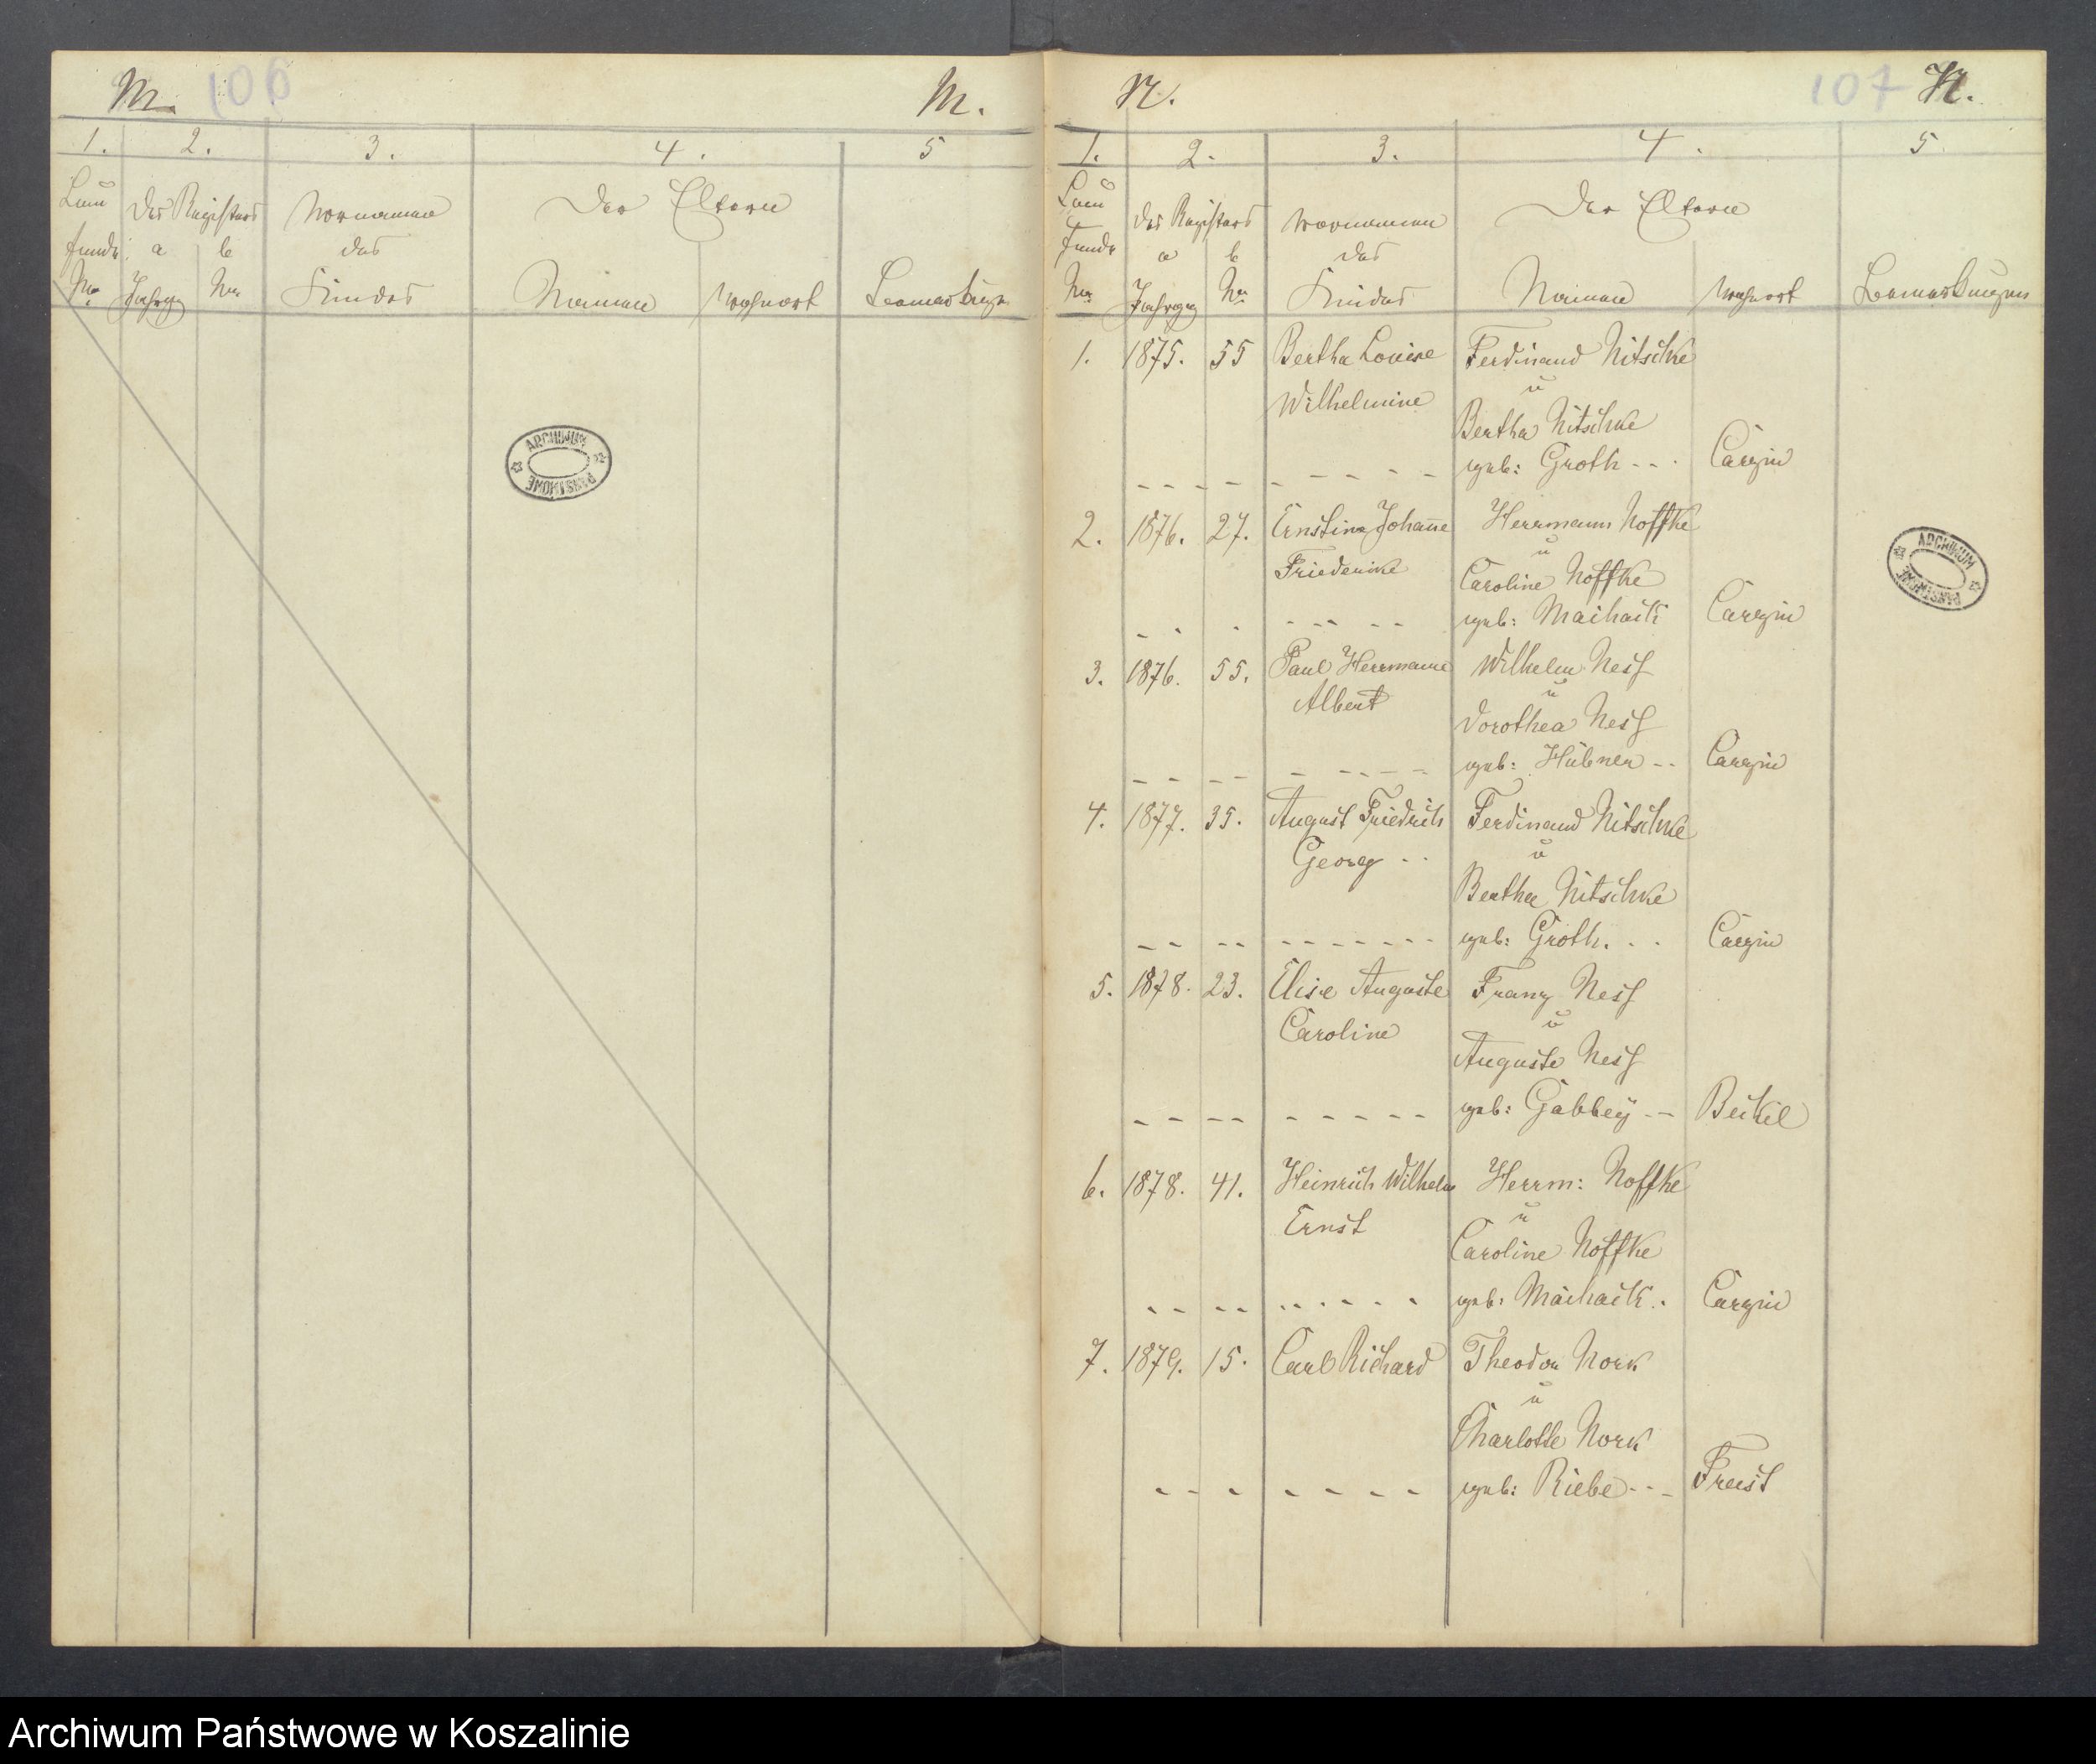 M. 106 M.
1. 2. 3. 4. 5
Lau
fende
No
Des Registers
a b
Jahrg No
Vornamen
des
Kindes
Der Eltern
Namen Wohnort
Bemerkungen
ARCHIWUM PAŃSTWOWE
N. 107 N.
1. 2. 3. 4. 5.
Lau
fende
No
Des Registers
a b
Jahrgg No
Vornamen
des
Kindes
Der Eltern
Namen Wohnort
Bemerkungen
1. 1875. 55 Bertha Louise Ferdinand Nitschke
u
Wilhelmine
Bertha Nitschke
geb: Groth Carzin
2. 1876. 27. Ernstine Johanne Herrmann Noffke
u
Friederike Caroline Noffke
geb: Maihack Carzin
ARCHIWUM PAŃSTWOWE
3. 1876. 55. Paul Herrmann Wilhelm Ness
u
Albert Dorothea Ness
geb: Hübner Carzin
4. 1877. 35. August Friedrich Ferdinand Nitschke
u
Georg
Bertha Nitschke
geb: Groth. Carzin
5. 1878. 23. Elise Auguste Franz Ness
u
Caroline
Auguste Ness
geb: Gabbey Beckel
6. 1878. 41. Heinrich Wilhelm Herrm: Noffke
u
Ernst
Caroline Noffke
geb: Maihack. Carzin
7. 1879. 15. Carl Richard Theodor Nork
u
Charlotte Nork
geb: Riebe Freist
Archiwum Państwowe w Koszalinie